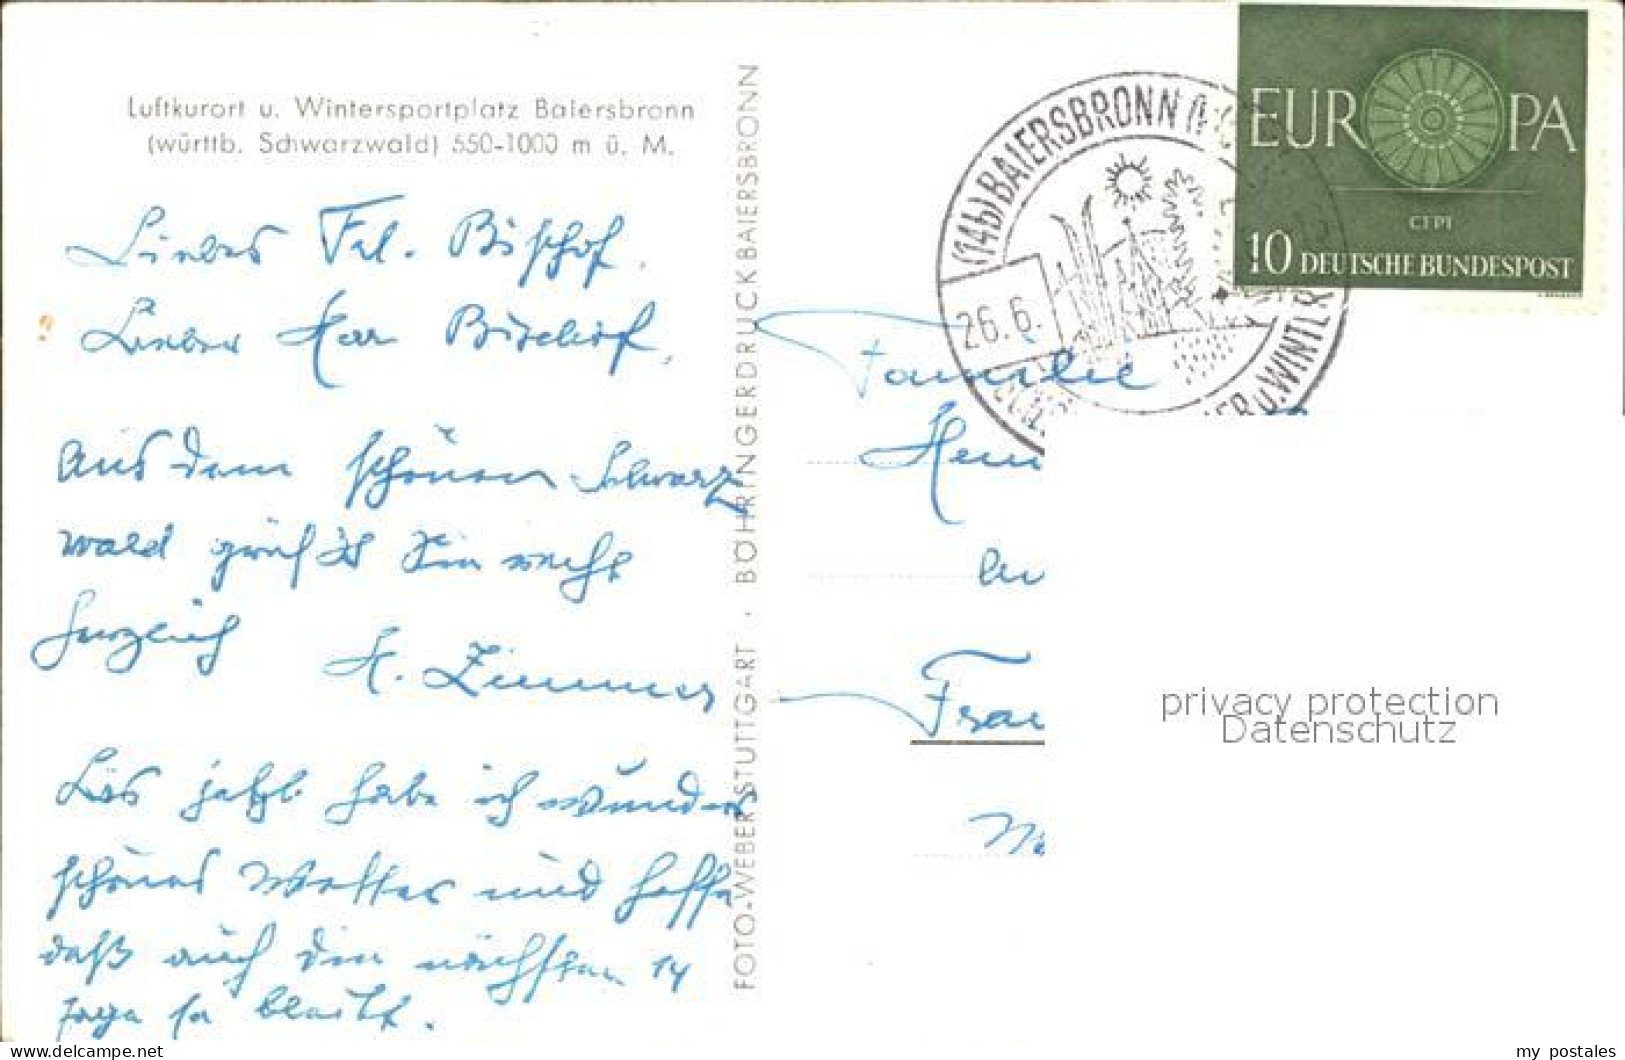 Luftkurort u. Wintersportplatz Baiersbronn
(württb. Schwarzwald) 550-1000 m ü. M.
Liebes Frl. Bischof,
Lieber Herr Bischof,
Aus dem schönen Schwarz
wald grüßt Sie recht
herzlich
H. Zimmer
Bis jetzt habe ich wunder
schönes Wetter und hoffe
daß auch die nächsten 14
Tage so bleibt.
FOTO-WEBER STUTTGART · BÖHRINGERDRUCK BAIERSBRONN
(14b) BAIERSBRONN
26.6.
U. WINTER
EUROPA
CEPT
10 DEUTSCHE BUNDESPOST
Familie
privacy protection
Datenschutz
my postales
https://www.delcampe.net